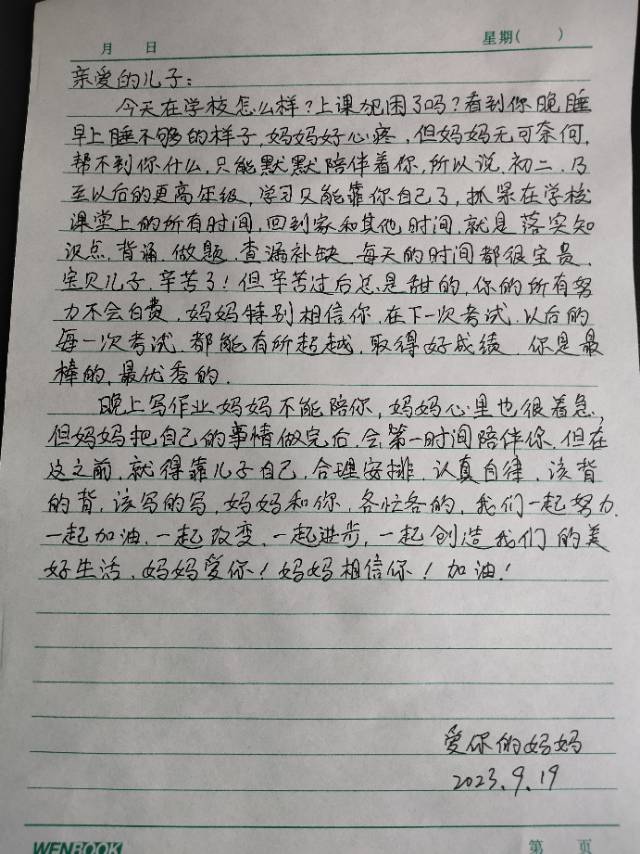 月 日 星期( )
亲爱的儿子：
今天在学校怎么样？上课犯困了吗？看到你晚睡
早上睡不够的样子，妈妈好心疼，但妈妈无可奈何，
帮不到你什么，只能默默陪伴着你，所以说，初二，乃
至以后的更高年级，学习只能靠你自己了，抓紧在学校
课堂上的所有时间，回到家和其他时间，就是落实知
识点，背诵，做题，查漏补缺，每天的时间都很宝贵，
宝贝儿子，辛苦了！但辛苦过后总是甜的，你的所有努
力不会白费，妈妈特别相信你，在下一次考试，以后的
每一次考试，都能有所超越，取得好成绩，你是最
棒的，最优秀的．
晚上写作业妈妈不能陪你，妈妈心里也很着急，
但妈妈把自己的事情做完后，会第一时间陪伴你，但在
这之前，就得靠儿子自己，合理安排，认真自律，该背
的背，该写的写，妈妈和你，各忙各的，我们一起努力，
一起加油，一起改变，一起进步，一起创造我们的美
好生活，妈妈爱你！妈妈相信你！加油！
爱你的妈妈
2023.9.19
WENBOOK 第 页